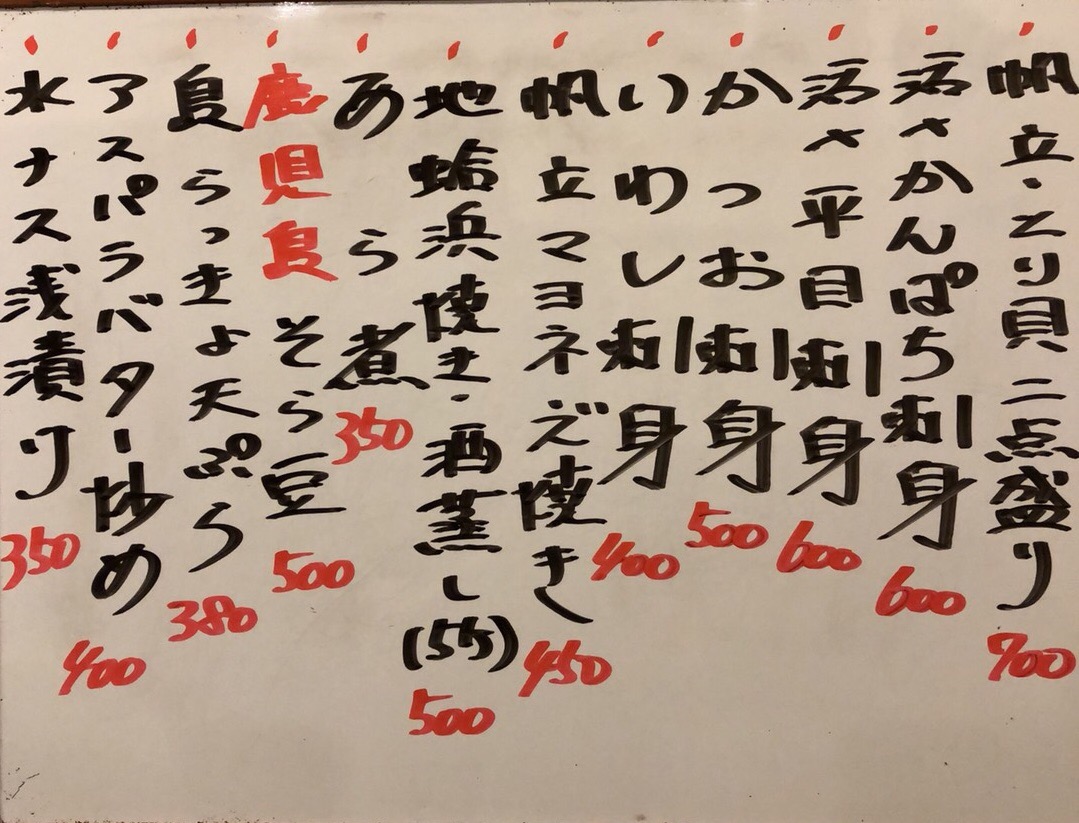 帆立・とり貝二点盛り 700
活〆かんぱち刺身 600
活〆平目刺身 600
かつお刺身 500
いわし刺身 400
帆立マヨネーズ焼き 450
地蛤浜焼き・酒蒸し(5ケ) 500
あら煮 350
鹿児島そら豆 500
島らっきょ天ぷら 380
アスパラバター炒め 400
水ナス浅漬り 350